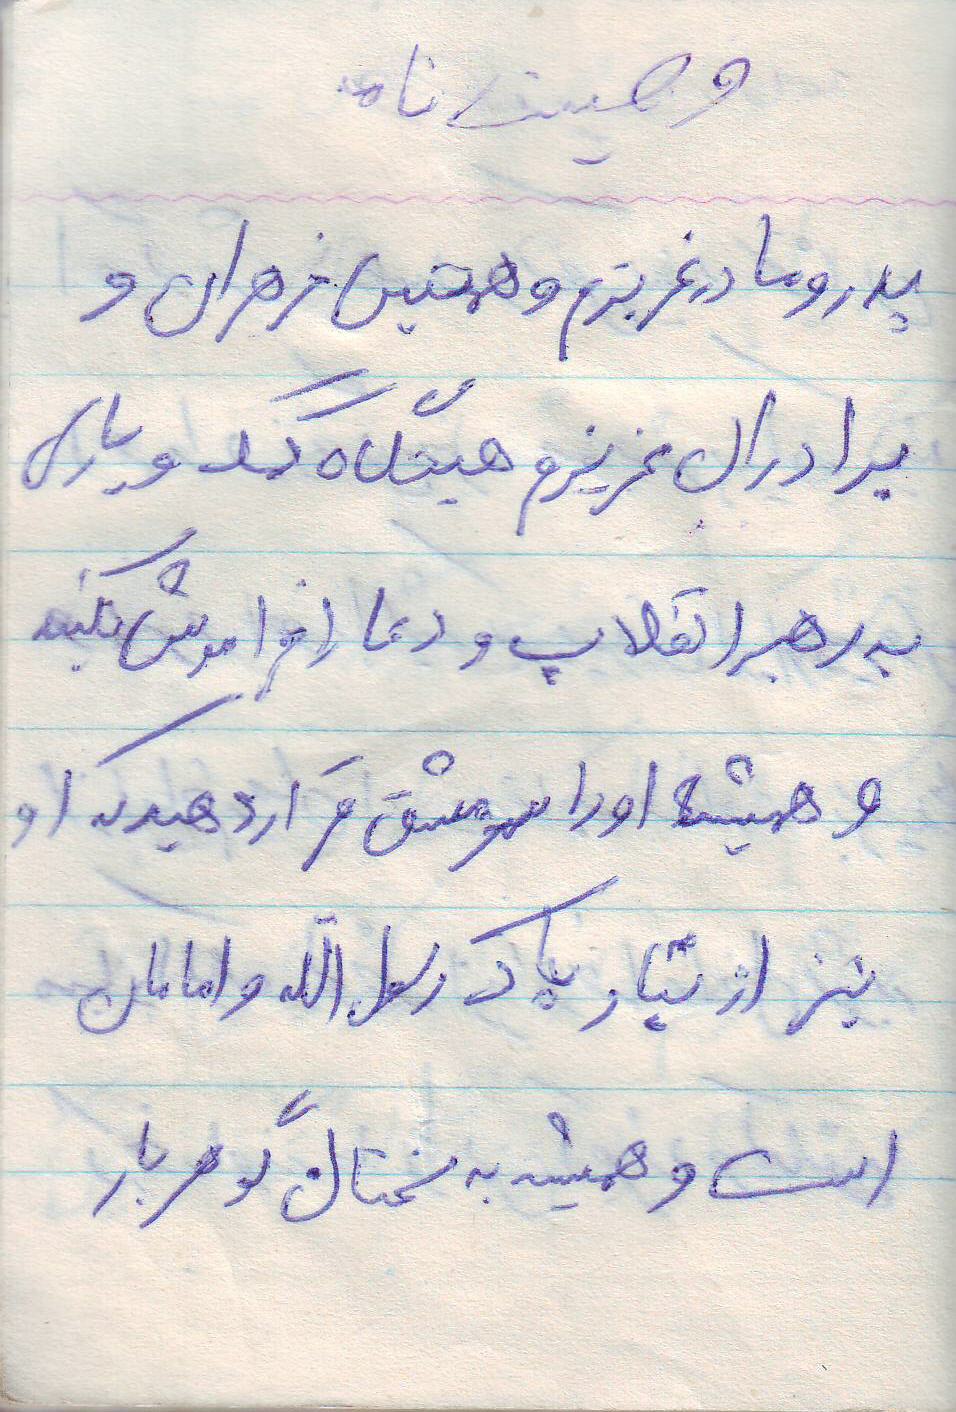 وصیت نامه
پدر و مادر عزیزم و همچنین خواهران و
برادران عزیزم هیچگاه کمک و یاری
به رهبر انقلاب و دعا را فراموش نکنید
و همیشه او را سرمشق قرار دهید که او
نیز از تبار پاک رسول الله و امامان
است و همیشه به سخنان گوهر بار